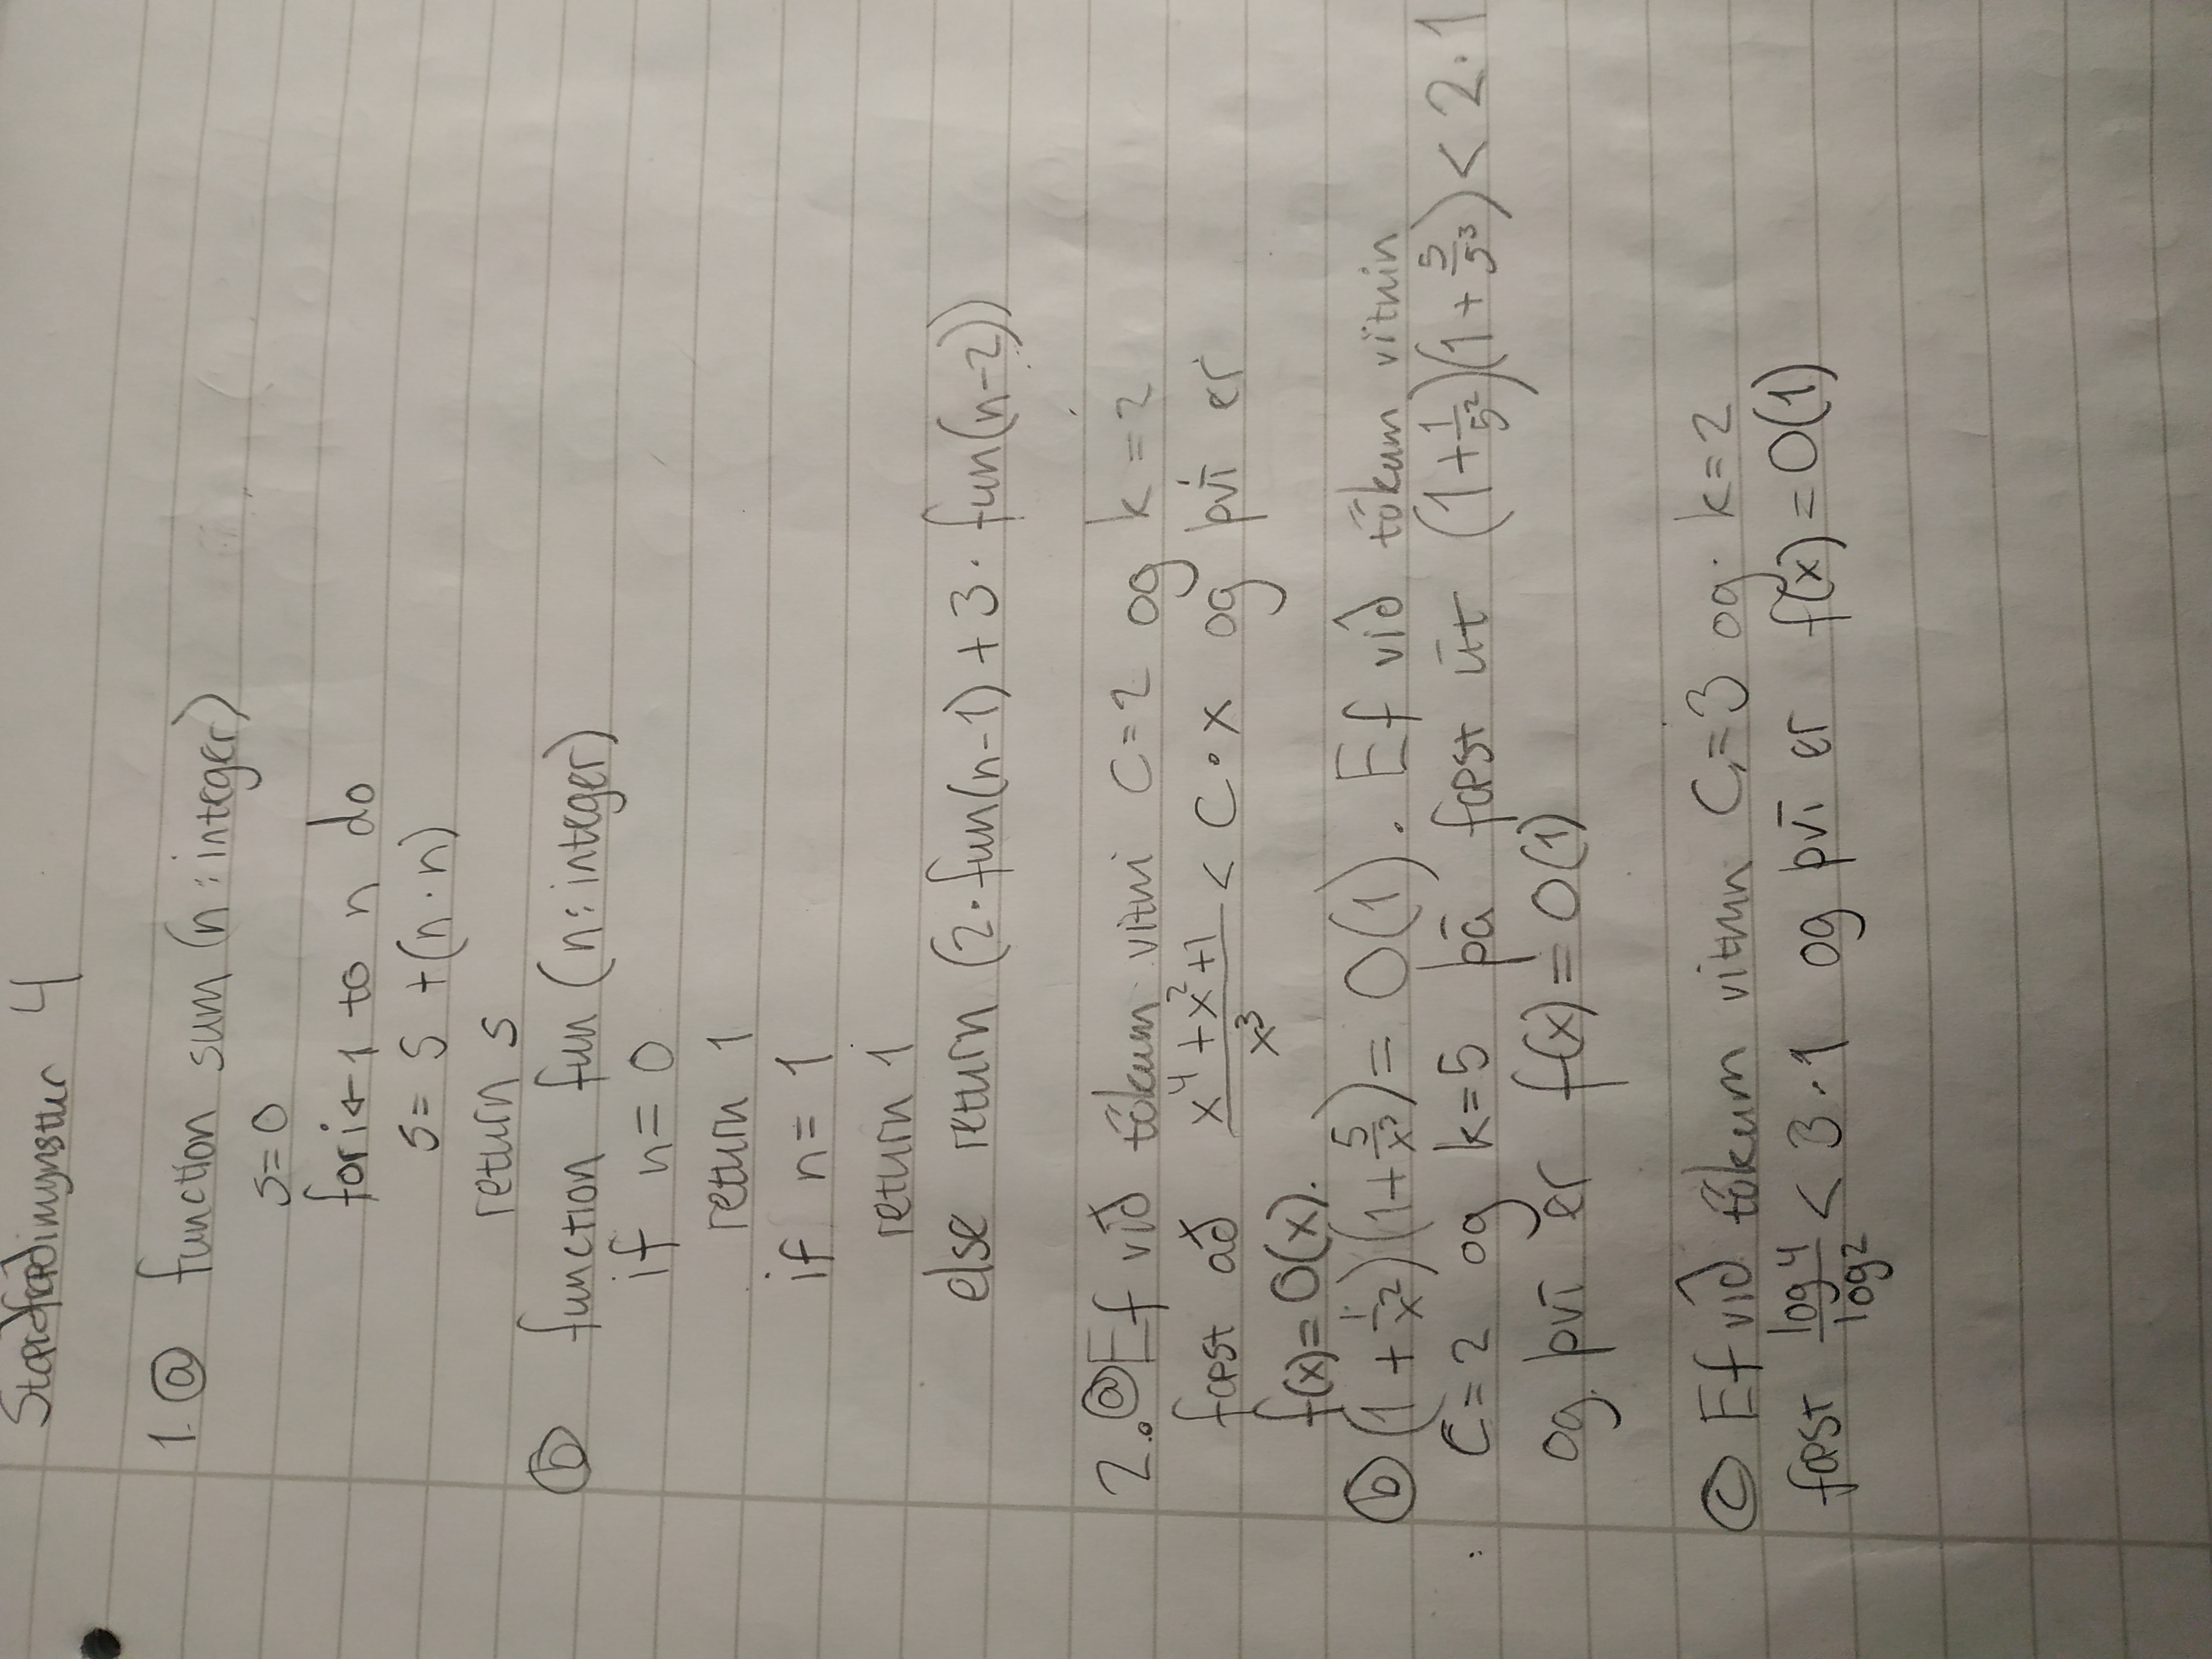 Stærðfræðimynstur 4
1. ⓐ function sum (n : integer)
s=0
for i ← 1 to n do
s = s + (n · n)
return s
ⓑ function fun (n : integer)
if n = 0
return 1
if n = 1
return 1
else return (2 · fun(n-1) + 3 · fun(n-2))
2. ⓐ Ef við tökum vitni C=2 og k=2
fæst að (x⁴+x²+1)/x³ < C · x og því er
f(x)= O(x).
ⓑ (1 + 1/x²)(1 + 5/x³) = O(1). Ef við tökum vitnin
C=2 og k=5 þá fæst út (1 + 1/5²)(1 + 5/5³) < 2 · 1
og því er f(x) = O(1)
ⓒ Ef við tökum vitnin C=3 og k=2
fæst log4/log2 < 3 · 1 og því er f(x) = O(1)